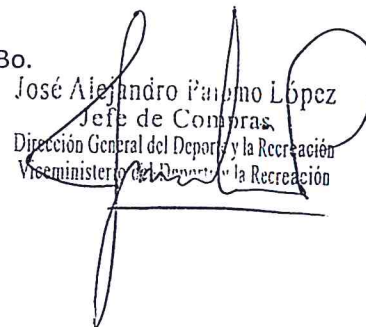 Bo.
José Alejandro Palomo López
Jefe de Compras
Dirección General del Deporte y la Recreación
Viceministerio del Deporte y la Recreación